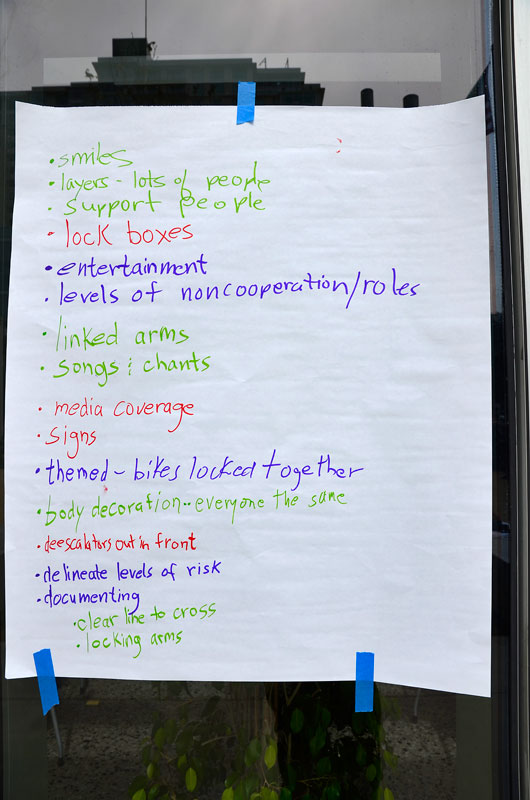 • smiles
• layers - lots of people
• support people
• lock boxes
• entertainment
• levels of noncooperation/roles
• linked arms
• songs & chants
• media coverage
• signs
• themed - bikes locked together
• body decoration -- everyone the same
• deescalators out in front
• delineate levels of risk
• documenting
• clear line to cross
• locking arms